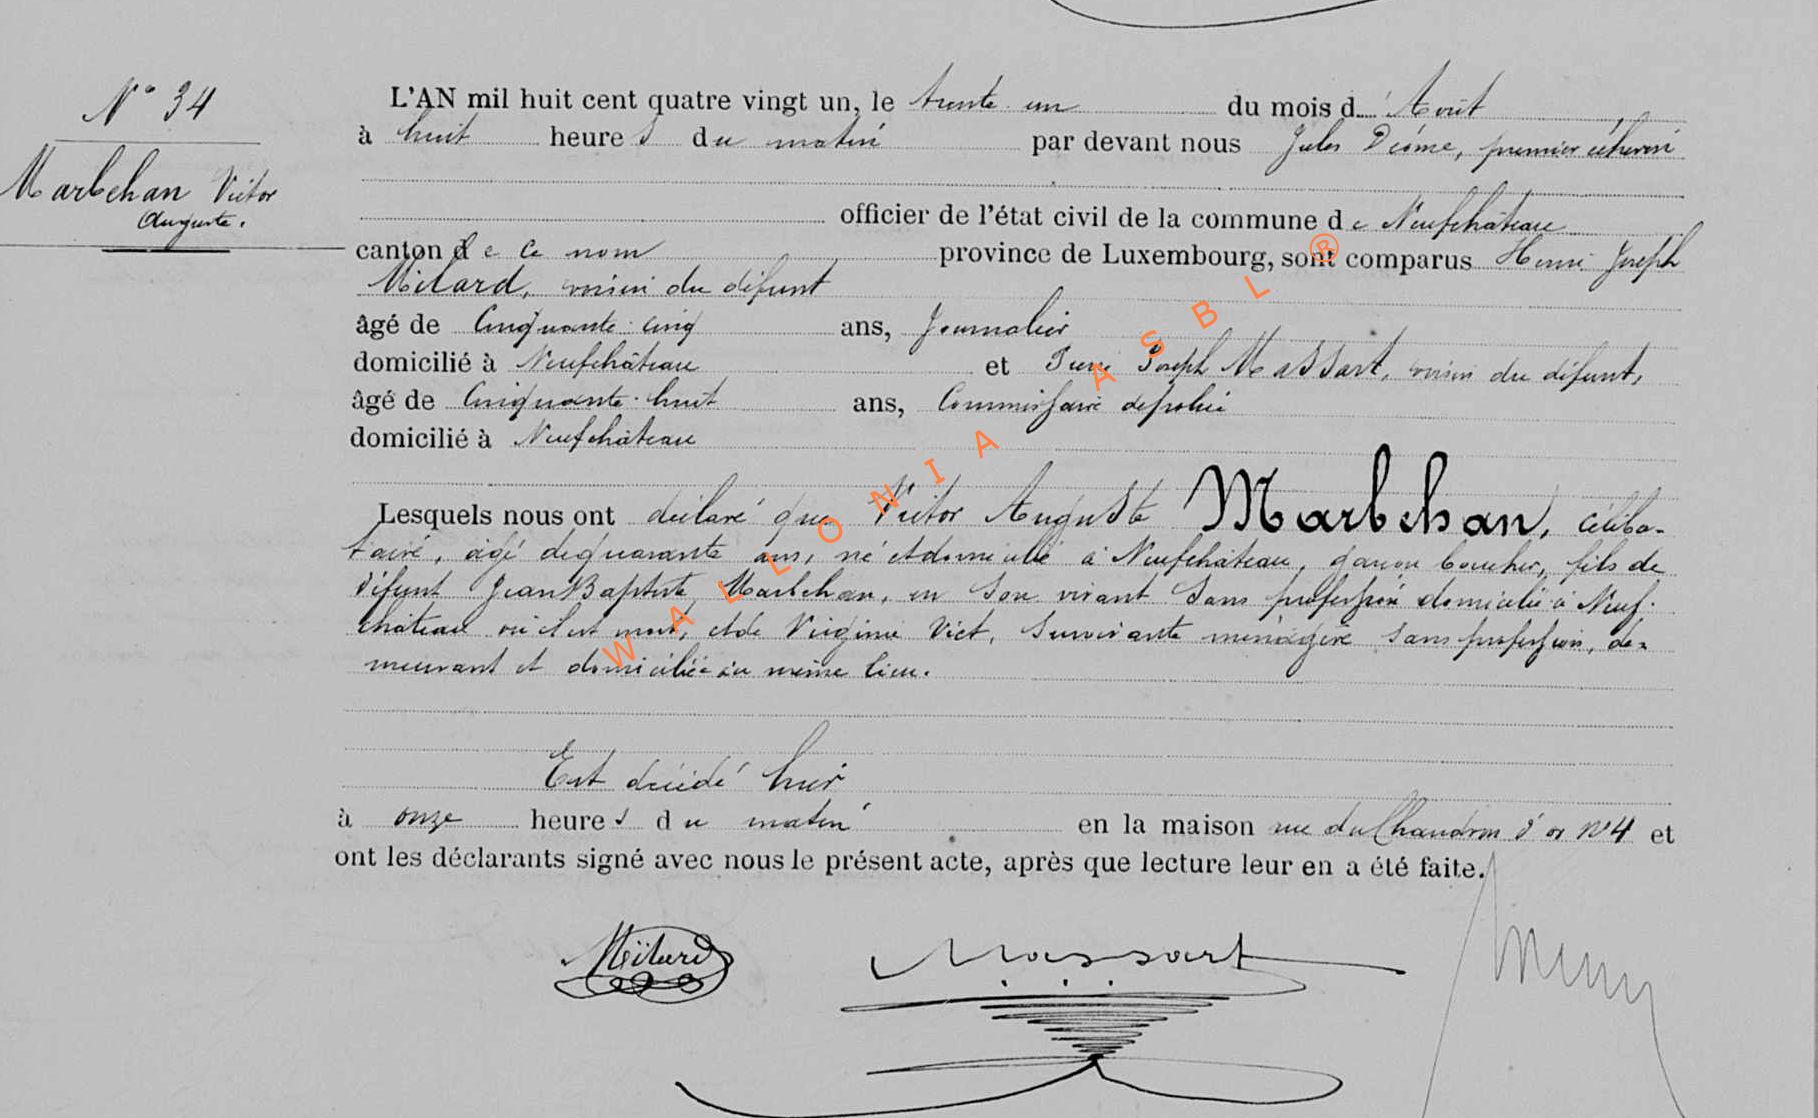 N° 34
Marbehan Victor
Auguste.
L'AN mil huit cent quatre vingt un, le trente un du mois d' Août
à huit heures du matin par devant nous Jules Dième, premier échevin
officier de l'état civil de la commune de Neufchâteau
canton de ce nom province de Luxembourg, sont comparus Henri Joseph
Milard, voisin du défunt
âgé de Cinquante-cinq ans, Journalier
domicilié à Neufchâteau et Joseph Massart, voisin du défunt,
âgé de Cinquante-huit ans, Commissaire de police
domicilié à Neufchâteau
Lesquels nous ont déclaré que Victor Auguste Marbehan, céliba-
taire, âgé de quarante ans, né et domicilié à Neufchâteau, garçon boucher, fils de
défunt Jean Baptiste Marbehan, en son vivant sans profession domicilié à Neuf-
château où il est mort, et de Virginie Vict, survivante ménagère sans profession, de-
meurant et domiciliée au même lieu.
Est décédé hier
à onze heures du matin en la maison rue du Chaudron d'or N° 4 et
ont les déclarants signé avec nous le présent acte, après que lecture leur en a été faite.
Milard Massart
WALLONIA ASBL ®